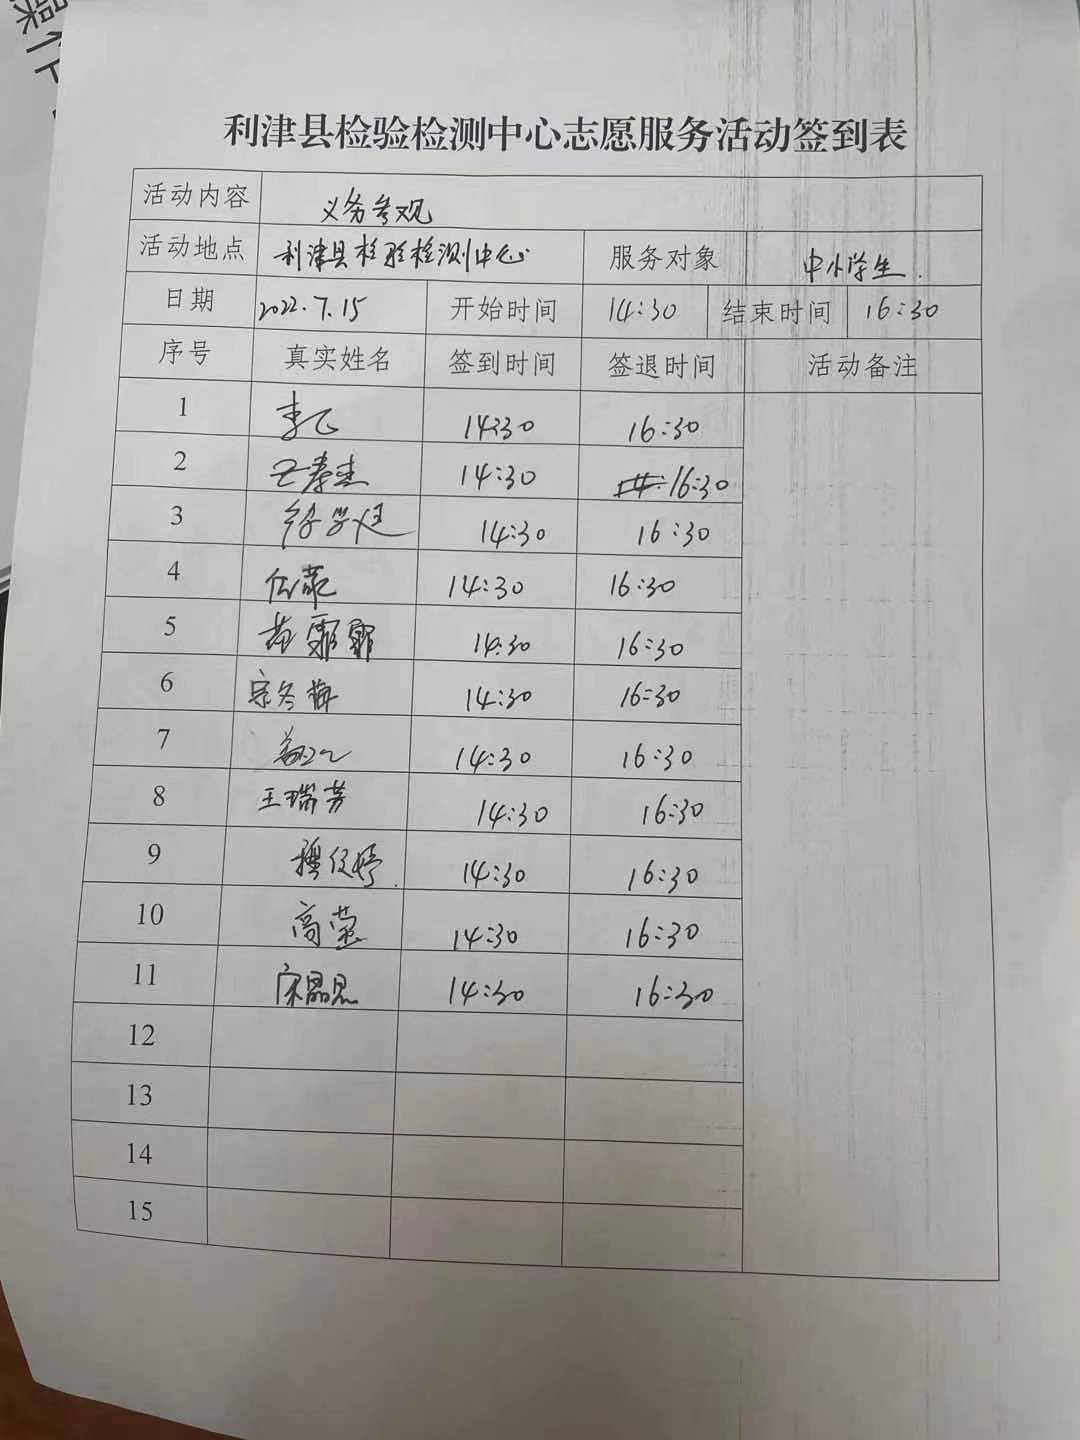 操作
利津县检验检测中心志愿服务活动签到表
活动内容 义务参观
活动地点 利津县检验检测中心 服务对象 中小学生.
日期 2022.7.15 开始时间 14:30 结束时间 16:30
序号 真实姓名 签到时间 签退时间 活动备注
1 李飞 14:30 16:30
2 14:30 16:30
3 14:30 16:30
4 14:30 16:30
5 霏霏 14:30 16:30
6 宗冬梅 14:30 16:30
7 14:30 16:30
8 王瑞芳 14:30 16:30
9 14:30 16:30
10 高莹 14:30 16:30
11 宋晶晶 14:30 16:30
12
13
14
15